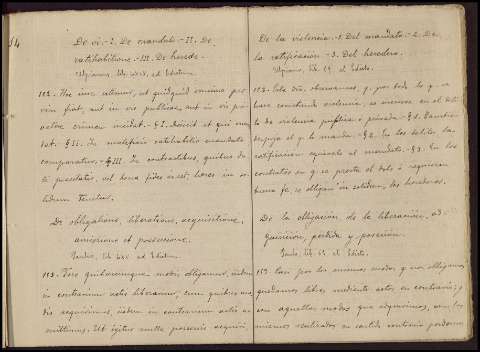 14
De vi.- I. De mandato - II. De
ratihabitione. - III. De herede.
Ulpianus, lib. LXIX, ad Edictum.
152. Hoc iure utimur, ut quidquid omnino per
vim fiat, aut in vis publicae, aut in vis pri-
vatae crimen incidat. - § I. Deiicit et qui man-
dat. - § II. In maleficio ratihabitio mandato
comparatur. - § III. In contractibus, quibus do-
li praestatio, vel bona fides inest, heres in so-
lidum tenetur.
De obligatione, liberatione, acquisitione,
amissione et possessione.
Paulus, lib. LXV, ad Edictum.
153. Fere quibuscumque modis obligamur, iisdem
in contrarium actis liberamur, cum quibus mo-
dis acquirimus, iisdem in contrarium actis a-
mittimus. Ut igitur nulla possessio acquiri,
De la violencia. - 1. Del mandato. - 2. De
la ratificación. - 3. Del heredero.
Ulpiano, lib. 69, al Edicto.
152. Este dro. observamos, q. por todo lo q. se
hace concurriendo violencia, se incurre en el delito
de violencia pública ó privada. - § 1. También
despoja el q. lo manda. - § 2. En los delitos la
ratificación equivale al mandato. - § 3. En los
contratos en q. se presta el dolo ó requieren
buena fe, se obligan in solidum los herederos.
De la obligación, de la liberación, ad-
quisición, pérdida y posesión.
Paulo, lib. 65, al Edicto.
153. Casi por los mismos modos q. nos obligamos,
quedamos libres mediante actos en contrario; y
con aquellos modos que adquirimos, con los
mismos realizados en sentido contrario perdemos